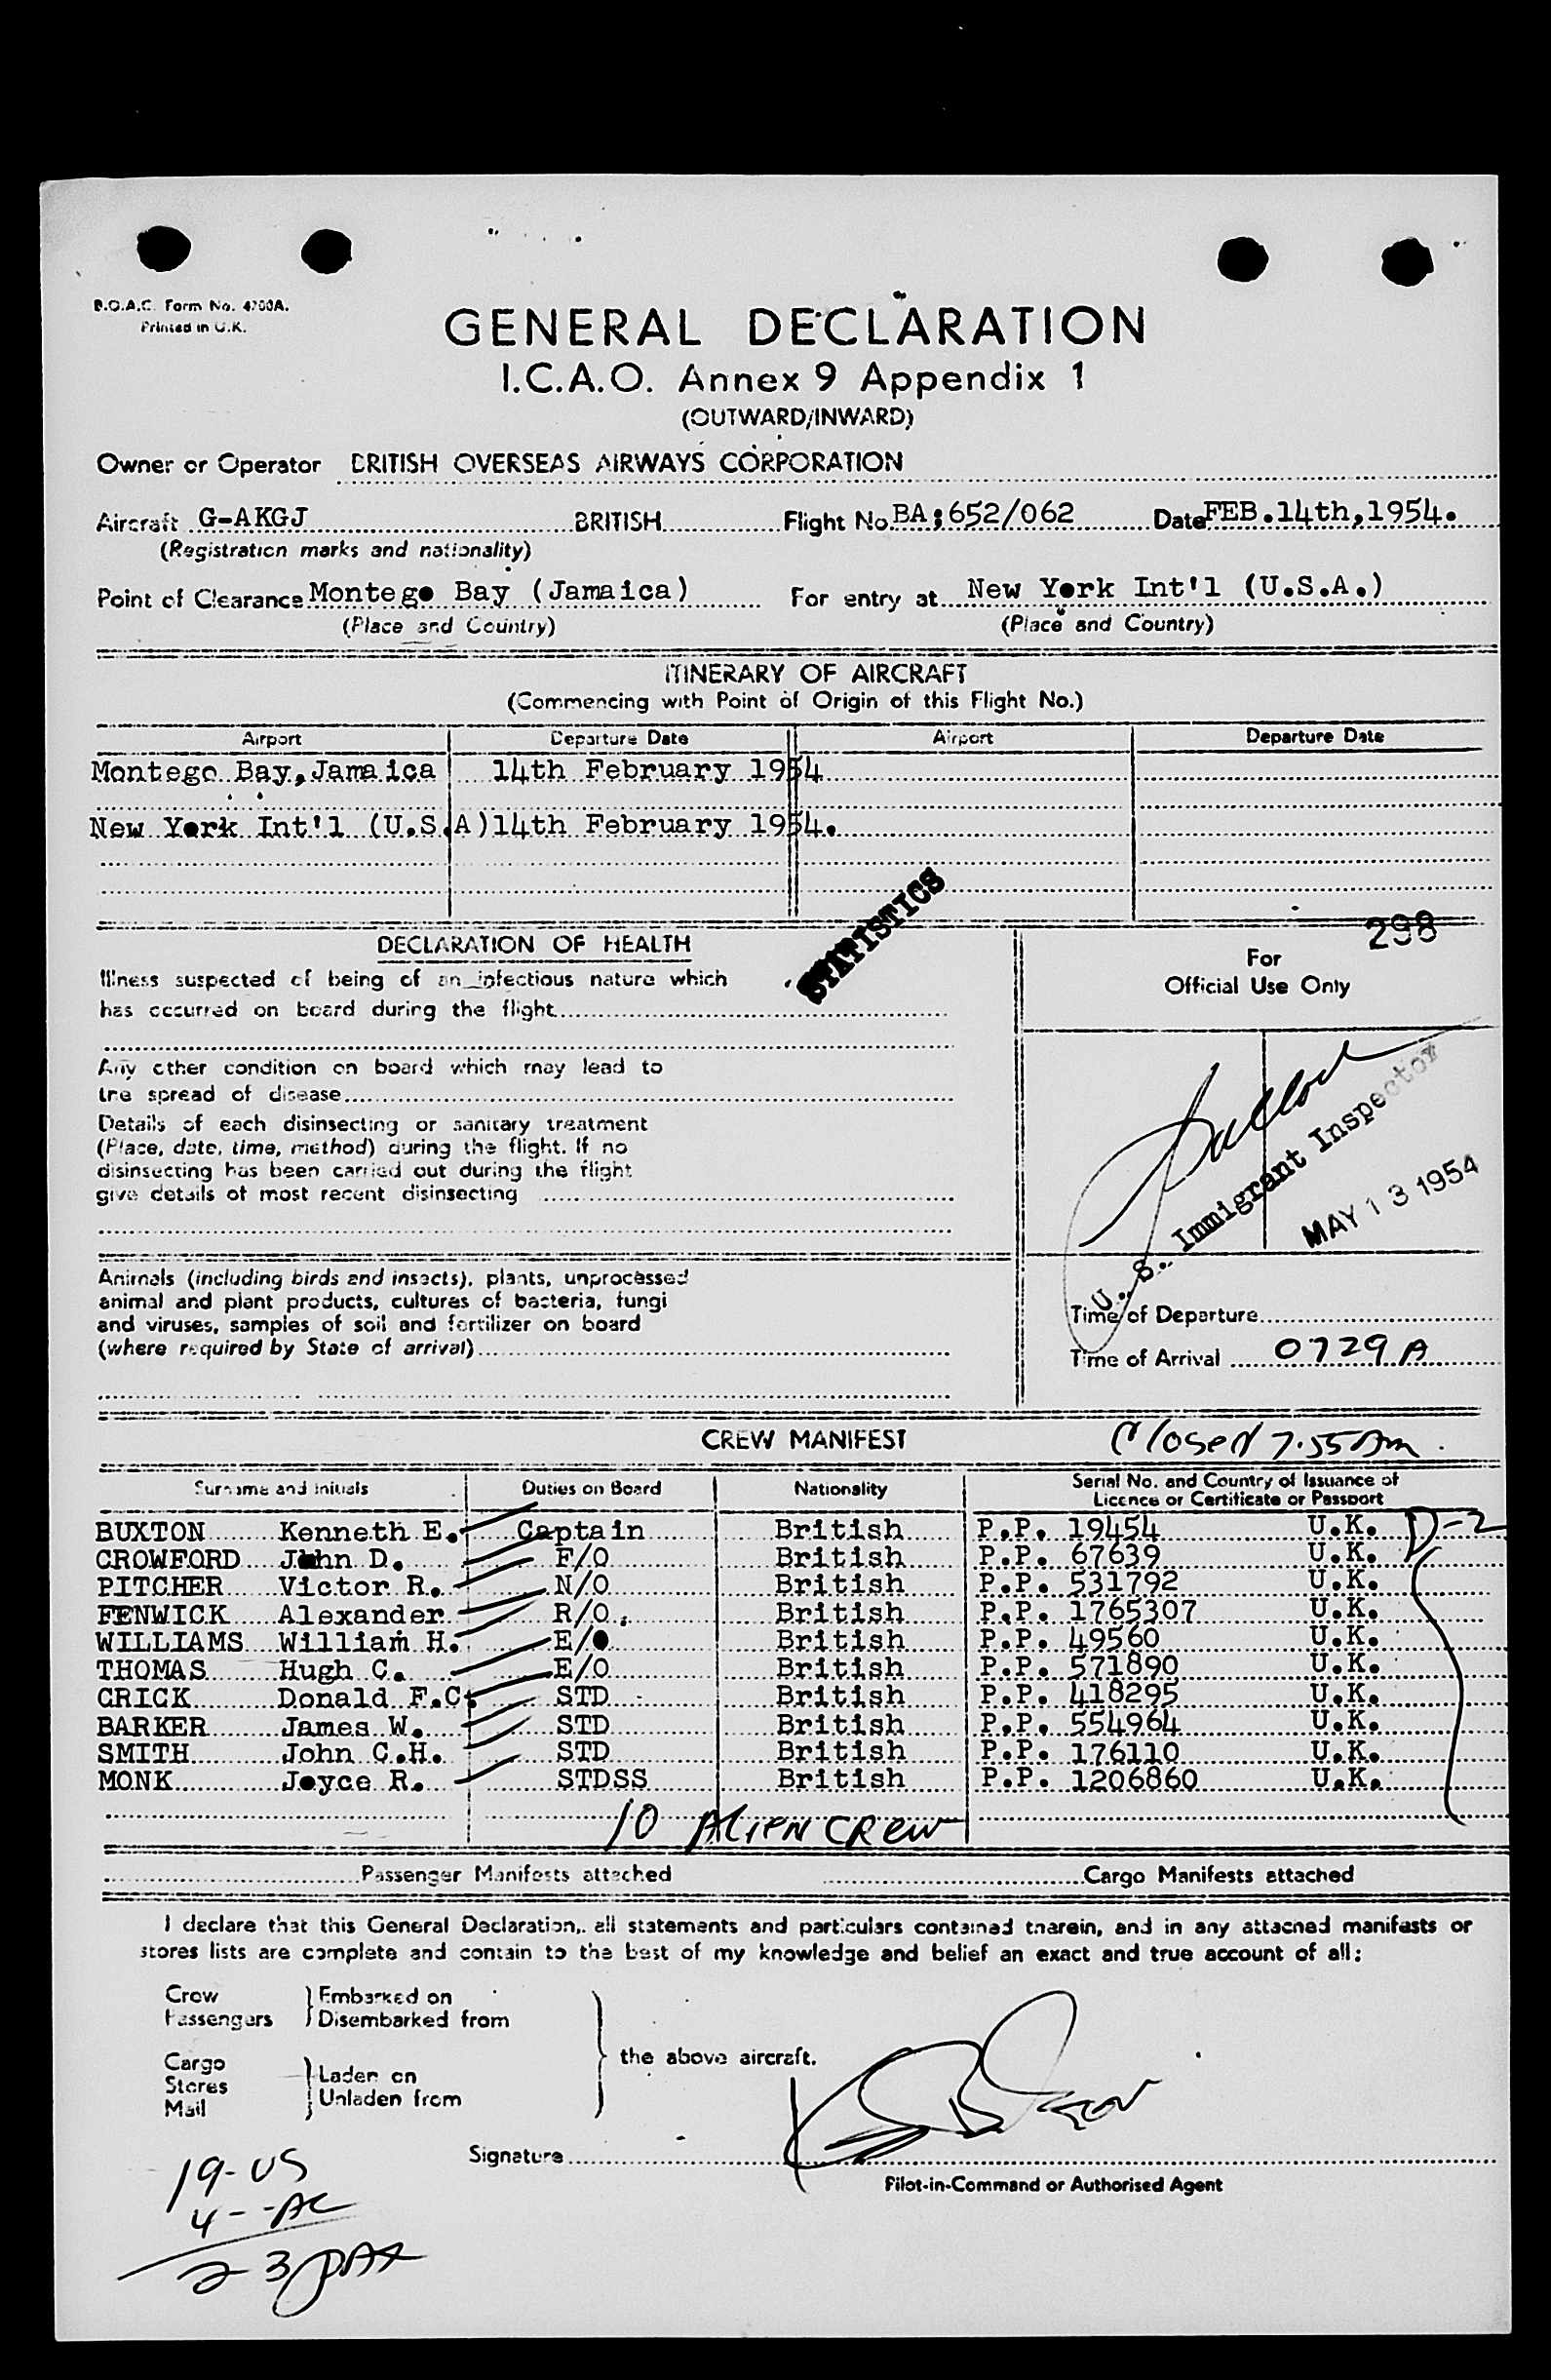 B.O.A.C. Form No. 4700A.
Printed in U.K.
GENERAL DECLARATION
I.C.A.O. Annex 9 Appendix 1
(OUTWARD/INWARD)
Owner or Operator BRITISH OVERSEAS AIRWAYS CORPORATION
Aircraft G-AKGJ BRITISH Flight No. BA;652/062 Date FEB.14th,1954.
(Registration marks and nationality)
Point of Clearance Montego Bay (Jamaica) For entry at New York Int'l (U.S.A.)
(Place and Country) (Place and Country)
ITINERARY OF AIRCRAFT
(Commencing with Point of Origin of this Flight No.)
Airport Departure Date Airport Departure Date
Montego Bay,Jamaica 14th February 1954
New York Int'l (U.S.A)14th February 1954.
STATISTICS
298
DECLARATION OF HEALTH
Illness suspected of being of an infectious nature which
has occurred on board during the flight
Any other condition on board which may lead to
the spread of disease
Details of each disinsecting or sanitary treatment
(Place, date, time, method) during the flight. If no
disinsecting has been carried out during the flight
give details of most recent disinsecting
Animals (including birds and insects), plants, unprocessed
animal and plant products, cultures of bacteria, fungi
and viruses, samples of soil and fertilizer on board
(where required by State of arrival)
For
Official Use Only
U. S. Immigrant Inspector
MAY 13 1954
Time of Departure
Time of Arrival 0729 A
CREW MANIFEST Closed 7.55 Am.
Surname and initials Duties on Board Nationality Serial No. and Country of Issuance of
Licence or Certificate or Passport
BUXTON Kenneth E. Captain British P.P. 19454 U.K. D-2
CROWFORD John D. F/O British P.P. 67639 U.K.
PITCHER Victor R. N/O British P.P. 531792 U.K.
FENWICK Alexander R/O. British P.P. 1765307 U.K.
WILLIAMS William H. E/O British P.P. 49560 U.K.
THOMAS Hugh C. E/O British P.P. 571890 U.K.
CRICK Donald F.C. STD British P.P. 418295 U.K.
BARKER James W. STD British P.P. 554964 U.K.
SMITH John C.H. STD British P.P. 176110 U.K.
MONK Joyce R. STDSS British P.P. 1206860 U.K.
10 ALIEN CREW
Passenger Manifests attached Cargo Manifests attached
I declare that this General Declaration, all statements and particulars contained therein, and in any attached manifests or
stores lists are complete and contain to the best of my knowledge and belief an exact and true account of all:
Crew Embarked on
Passengers Disembarked from
the above aircraft.
Cargo
Stores Laden on
Mail Unladen from
Signature
Pilot-in-Command or Authorised Agent
19-US
4--AC
23 PAX